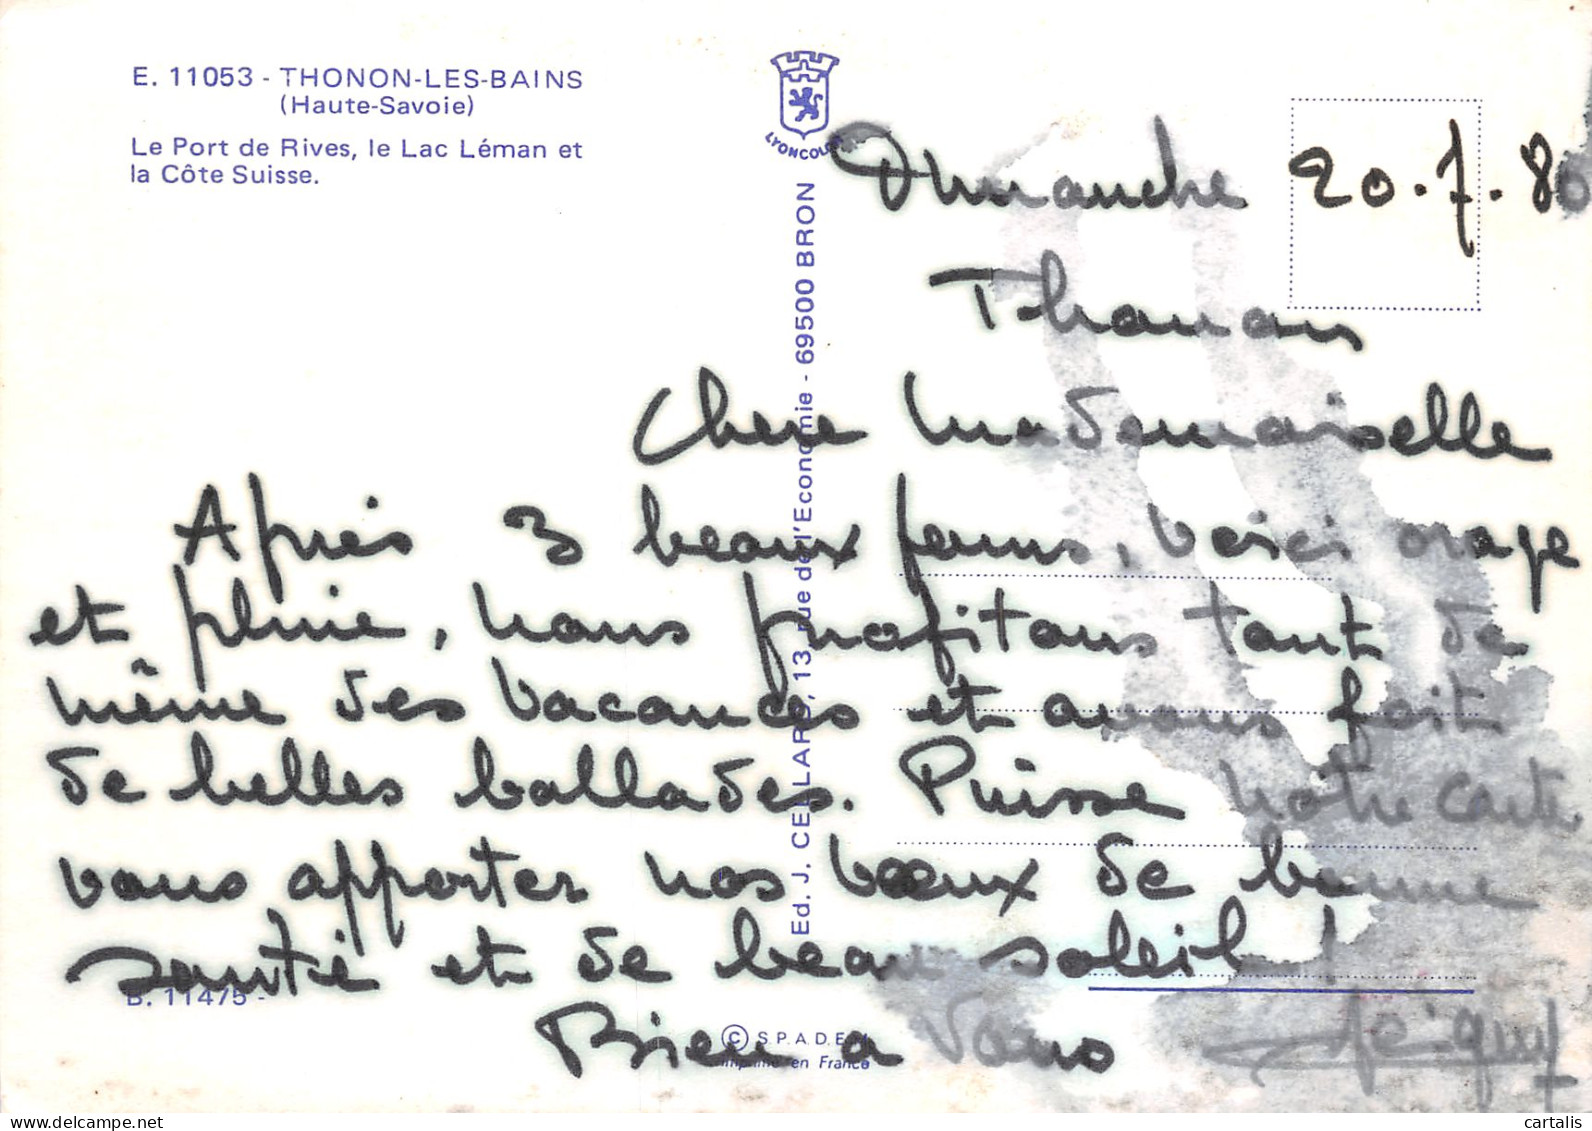 E. 11053 - THONON-LES-BAINS
(Haute-Savoie)
Le Port de Rives, le Lac Léman et
la Côte Suisse.
LYONCOLOR
Ed. J. CELLARD, 13, rue de l'Economie - 69500 BRON
Dimanche 20.7.80
Thonon
Chère Mademoiselle
Après 3 beaux jours, voici orage
et pluie, nous profitons tout de
même des vacances et avons fait
de belles ballades. Puisse notre carte
vous apporter nos voeux de bonne
santé et de beau soleil !
B. 11475 -
Bien à Vous
© S.P.A.D.E.M.
Imprimé en France
cartalis